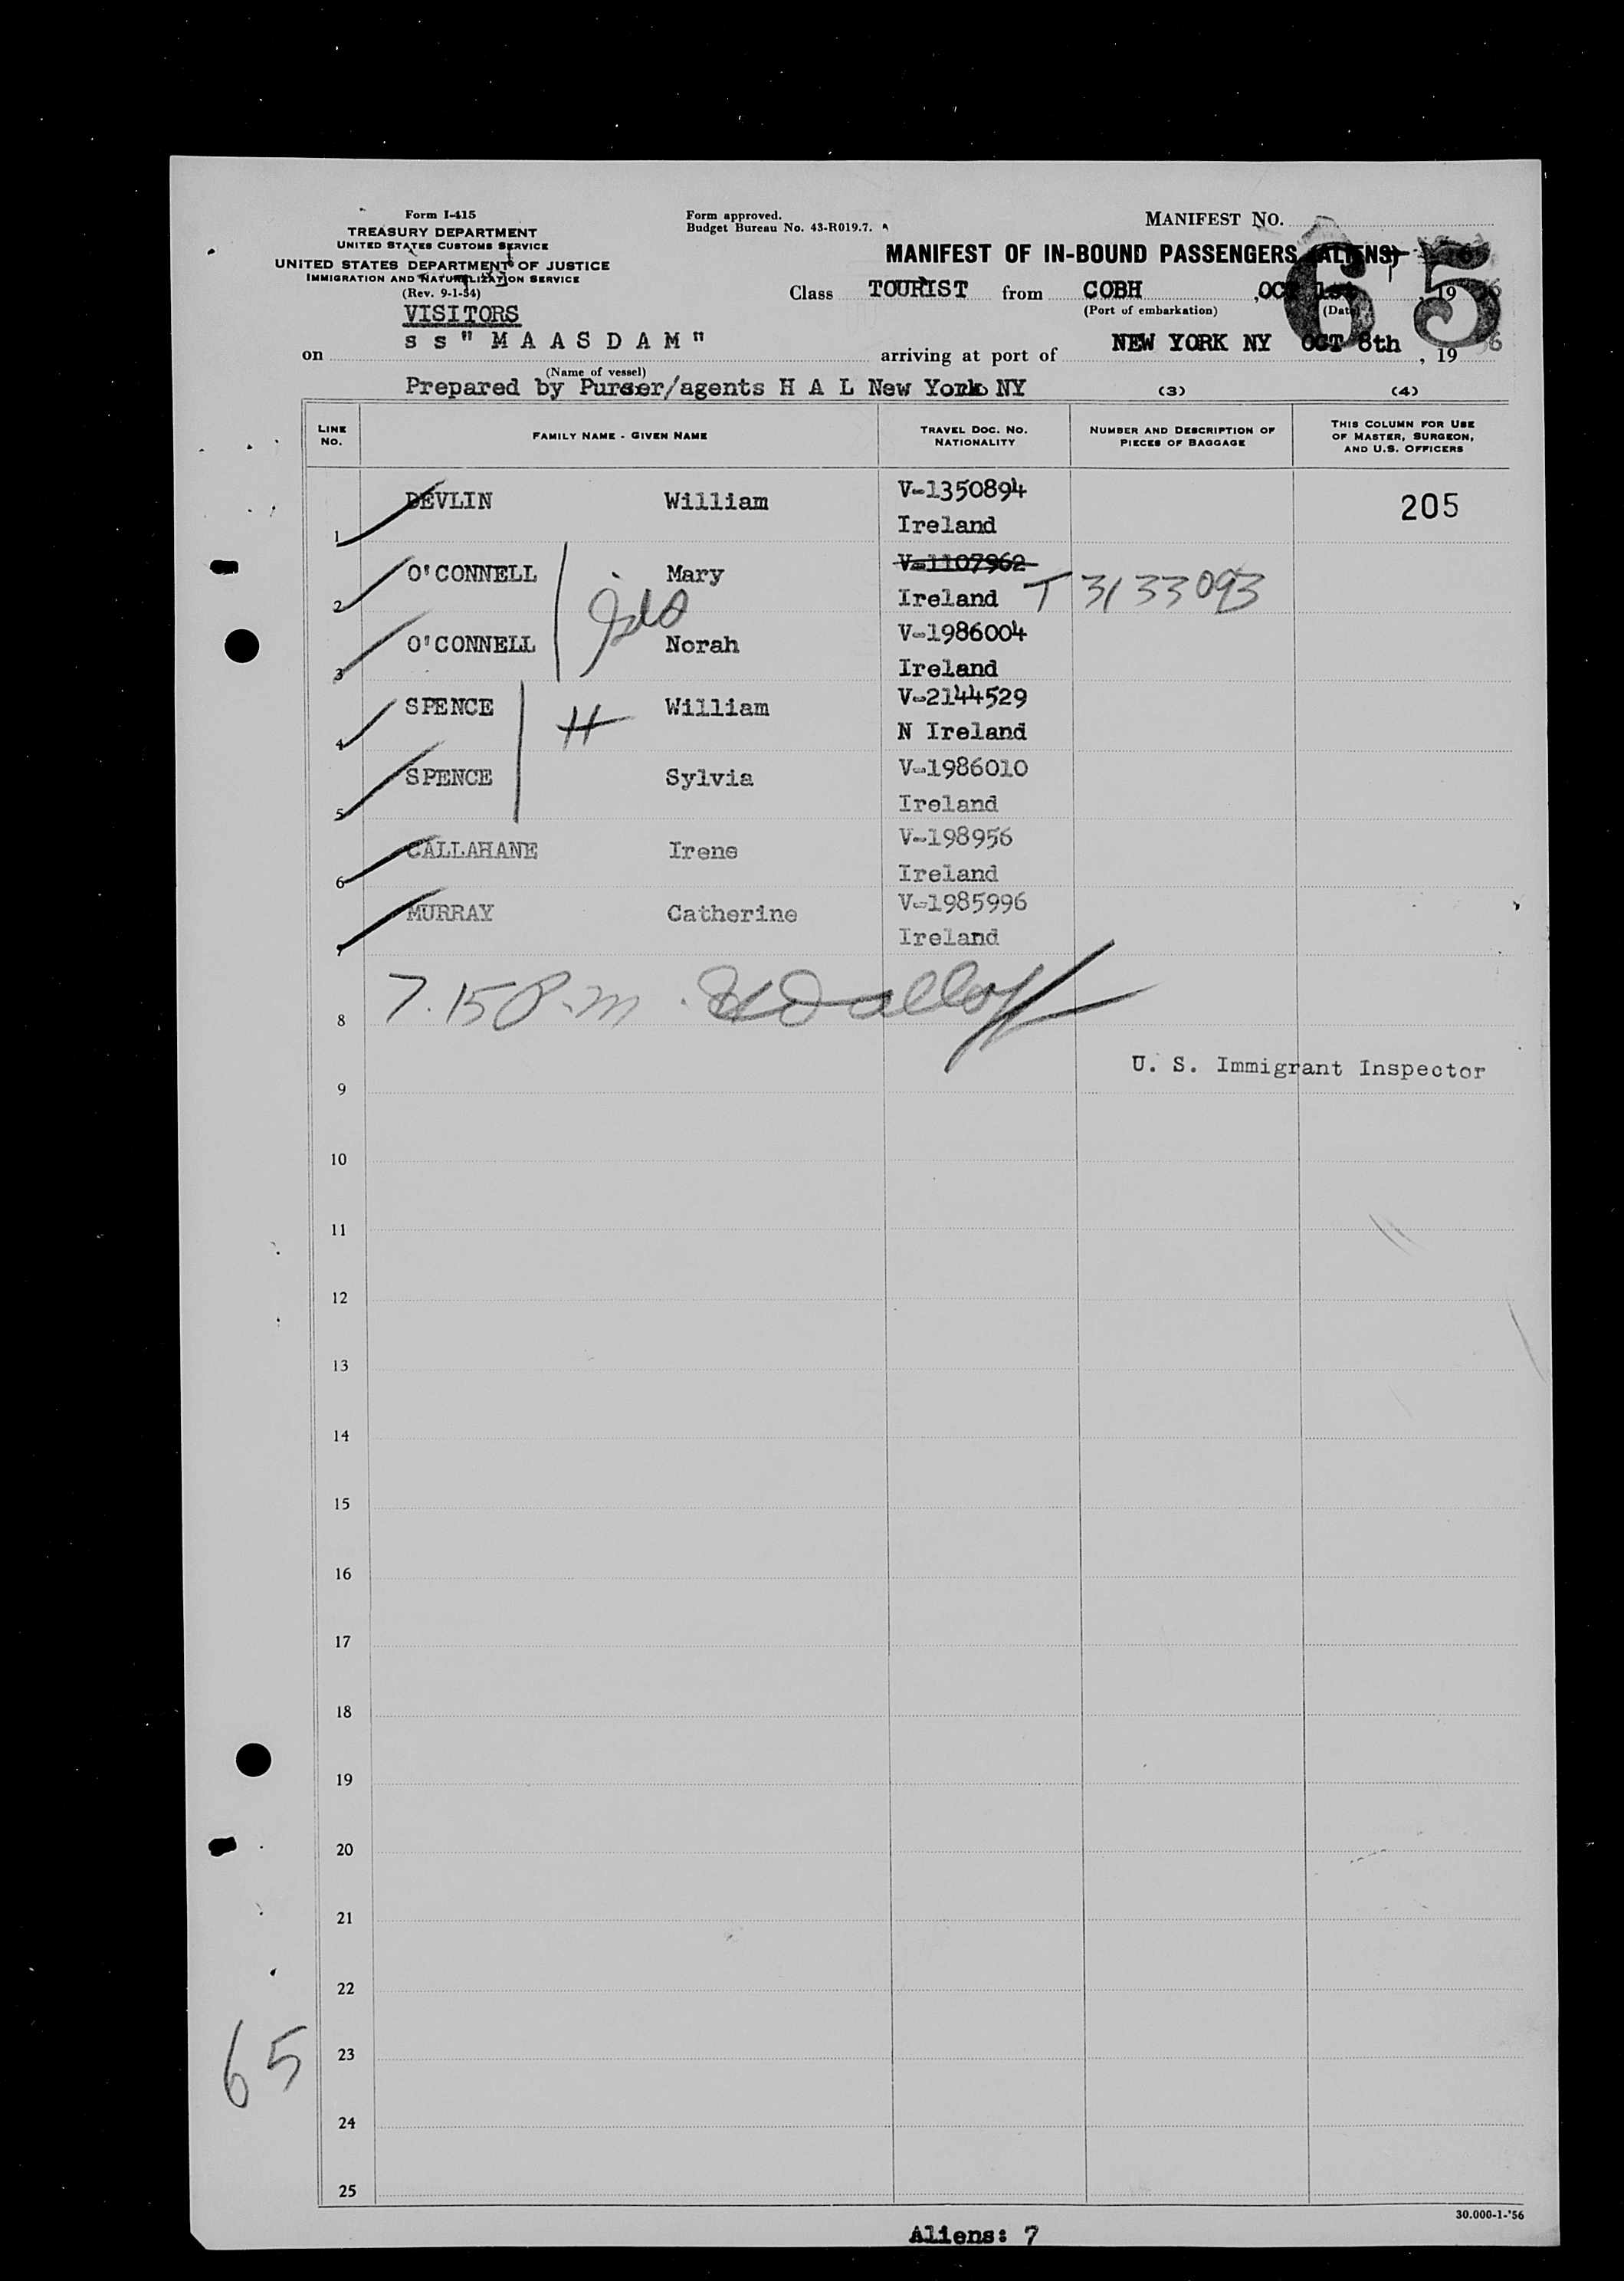 Form I-415
TREASURY DEPARTMENT
UNITED STATES CUSTOMS SERVICE
UNITED STATES DEPARTMENT OF JUSTICE
IMMIGRATION AND NATURALIZATION SERVICE
(Rev. 9-1-54)
VISITORS
Form approved.
Budget Bureau No. 43-R019.7.
MANIFEST NO.
65
MANIFEST OF IN-BOUND PASSENGERS (ALIENS)
Class TOURIST from COBH ,OCT 1st , 19 56
(Port of embarkation) (Date)
on s s " M A A S D A M " arriving at port of NEW YORK NY OCT 8th , 19 56
(Name of vessel)
Prepared by Purser/agents H A L New York NY (3) (4)
LINE NO. FAMILY NAME - GIVEN NAME TRAVEL DOC. NO. NATIONALITY NUMBER AND DESCRIPTION OF PIECES OF BAGGAGE THIS COLUMN FOR USE OF MASTER, SURGEON, AND U.S. OFFICERS
1 DEVLIN William V-1350894 205
Ireland
2 O'CONNELL Mary V-1107962
Ireland T 3133093
3 O'CONNELL Norah V-1986004
Ireland
4 SPENCE H William V-2144529
N Ireland
5 SPENCE Sylvia V-1986010
Ireland
6 CALLAHANE Irene V-198956
Ireland
7 MURRAY Catherine V-1985996
Ireland
8 7.15 P.m.
U. S. Immigrant Inspector
9
10
11
12
13
14
15
16
17
18
19
20
21
22
65
23
24
25
30.000-1-'56
Aliens: 7